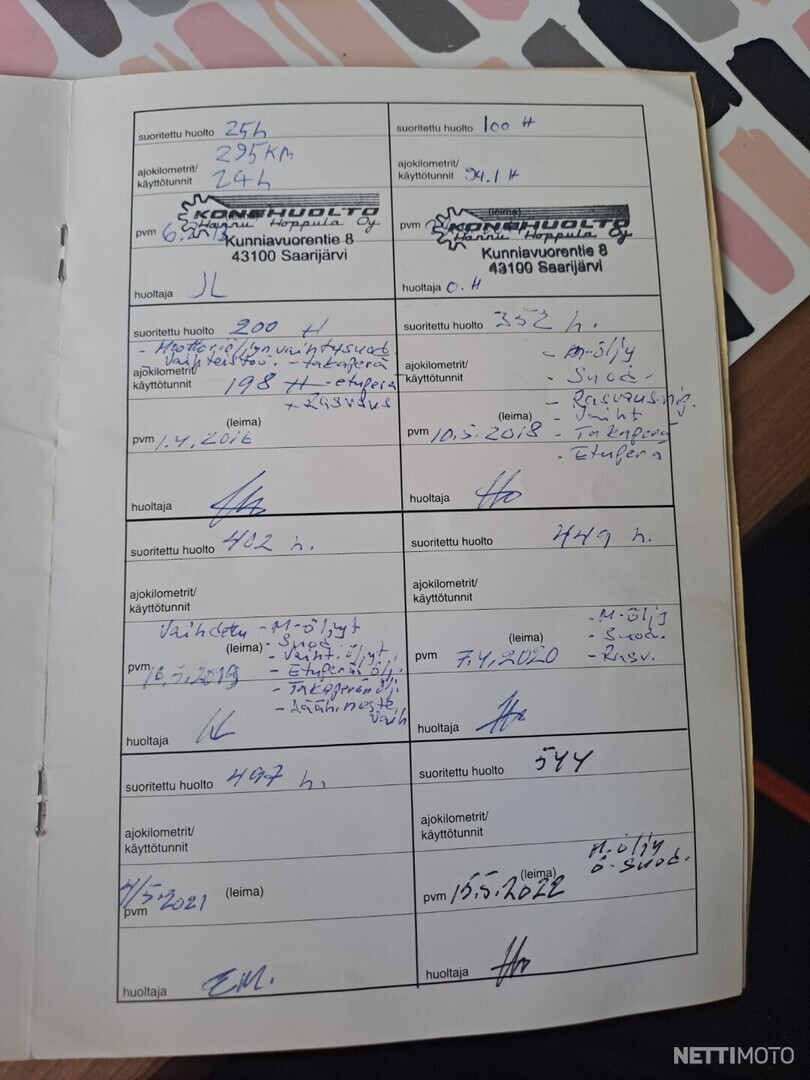 suoritettu huolto 25h
295KM
ajokilometrit/
käyttötunnit 24h
(leima)
KONEHUOLTO
Hannu Hoppula Oy
pvm
Kunniavuorentie 8
43100 Saarijärvi
huoltaja JL
suoritettu huolto 100 H
ajokilometrit/
käyttötunnit 94.1 H
(leima)
KONEHUOLTO
Hannu Hoppula Oy
pvm
Kunniavuorentie 8
43100 Saarijärvi
huoltaja O.H
suoritettu huolto 200 H
- Moottoriöljyn vaihtysuod.
vaihteisto. - takaperä
ajokilometrit/
käyttötunnit 198 H - etuperä
+ Rasvaus
(leima)
pvm 1.4.2016
huoltaja
suoritettu huolto 352 h.
- M-öljy
ajokilometrit/
käyttötunnit - Suod.
- Rasvaus
(leima) - Vaiht
pvm 10.5.2018 - Takaperä
- Etuperä
huoltaja Ho
suoritettu huolto 402 h.
ajokilometrit/
käyttötunnit
Vaihdettu - M-öljyt
(leima) - Suod
- Vaiht.öljyt
pvm - Etuperä ölj.
- Takaperän ölj.
- Jäähneste
vaih
huoltaja
suoritettu huolto 449 h.
ajokilometrit/
käyttötunnit
- M-ölj
(leima) - Suod.
pvm 7.4.2020 - Rasv.
huoltaja Ho
suoritettu huolto 497 h.
ajokilometrit/
käyttötunnit
(leima)
pvm 4/5.2021
huoltaja E.M.
suoritettu huolto 544
ajokilometrit/
käyttötunnit
M-öljy
(leima) ö-suod.
pvm 15.5.2022
huoltaja Ho
NETTIMOTO